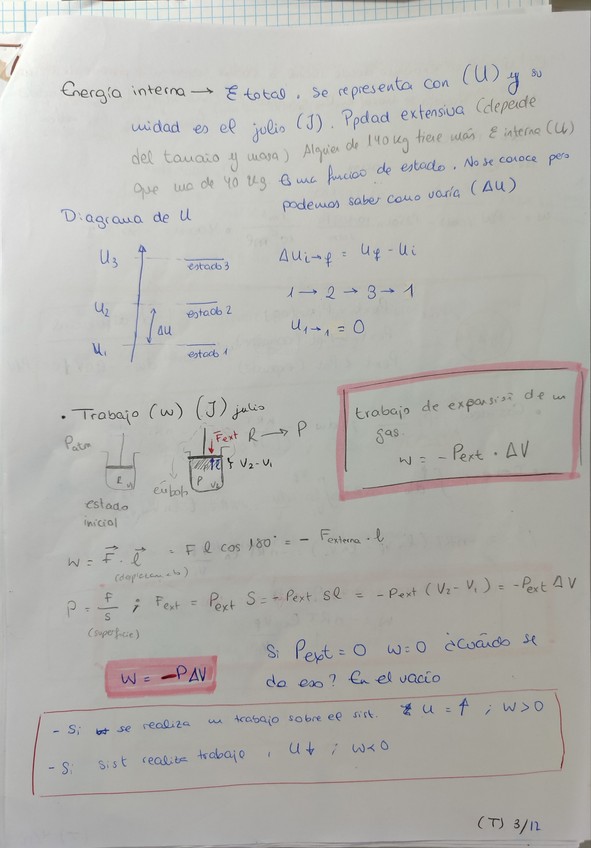 Energía interna → E total. Se representa con (U) y su
unidad es el julio (J). Ppdad extensiva (depende
del tamaño y masa) Alguien de 140 kg tiene más E interna (U)
que uno de 40 kg Es una función de estado. No se conoce pero
podemos saber como varía (ΔU)
Diagrama de U
U₃ estado 3
U₂ estado 2
ΔU
U₁ estado 1
ΔU i→f = Uf - Ui
1 → 2 → 3 → 1
U 1→1 = 0
• Trabajo (w) (J) julio
Fext R → P
R V₁
P V₂
l V₂-V₁
émbolo
estado
inicial
trabajo de expansión de un
gas.
w = - Pext · ΔV
W = F⃗ · l⃗ = F l cos 180° = - Fexterna · l
(desplazamiento)
P = f/s ; Fext = Pext S = - Pext Sl = - Pext (V₂ - V₁) = - Pext ΔV
(superficie)
W = -PΔV
Si Pext = 0 w=0 ¿Cuándo se
da eso? En el vacío
- Si se realiza un trabajo sobre el sist. U = ↑ ; w>0
- Si sist realiza trabajo, U↓ ; w<0
(T) 3/12